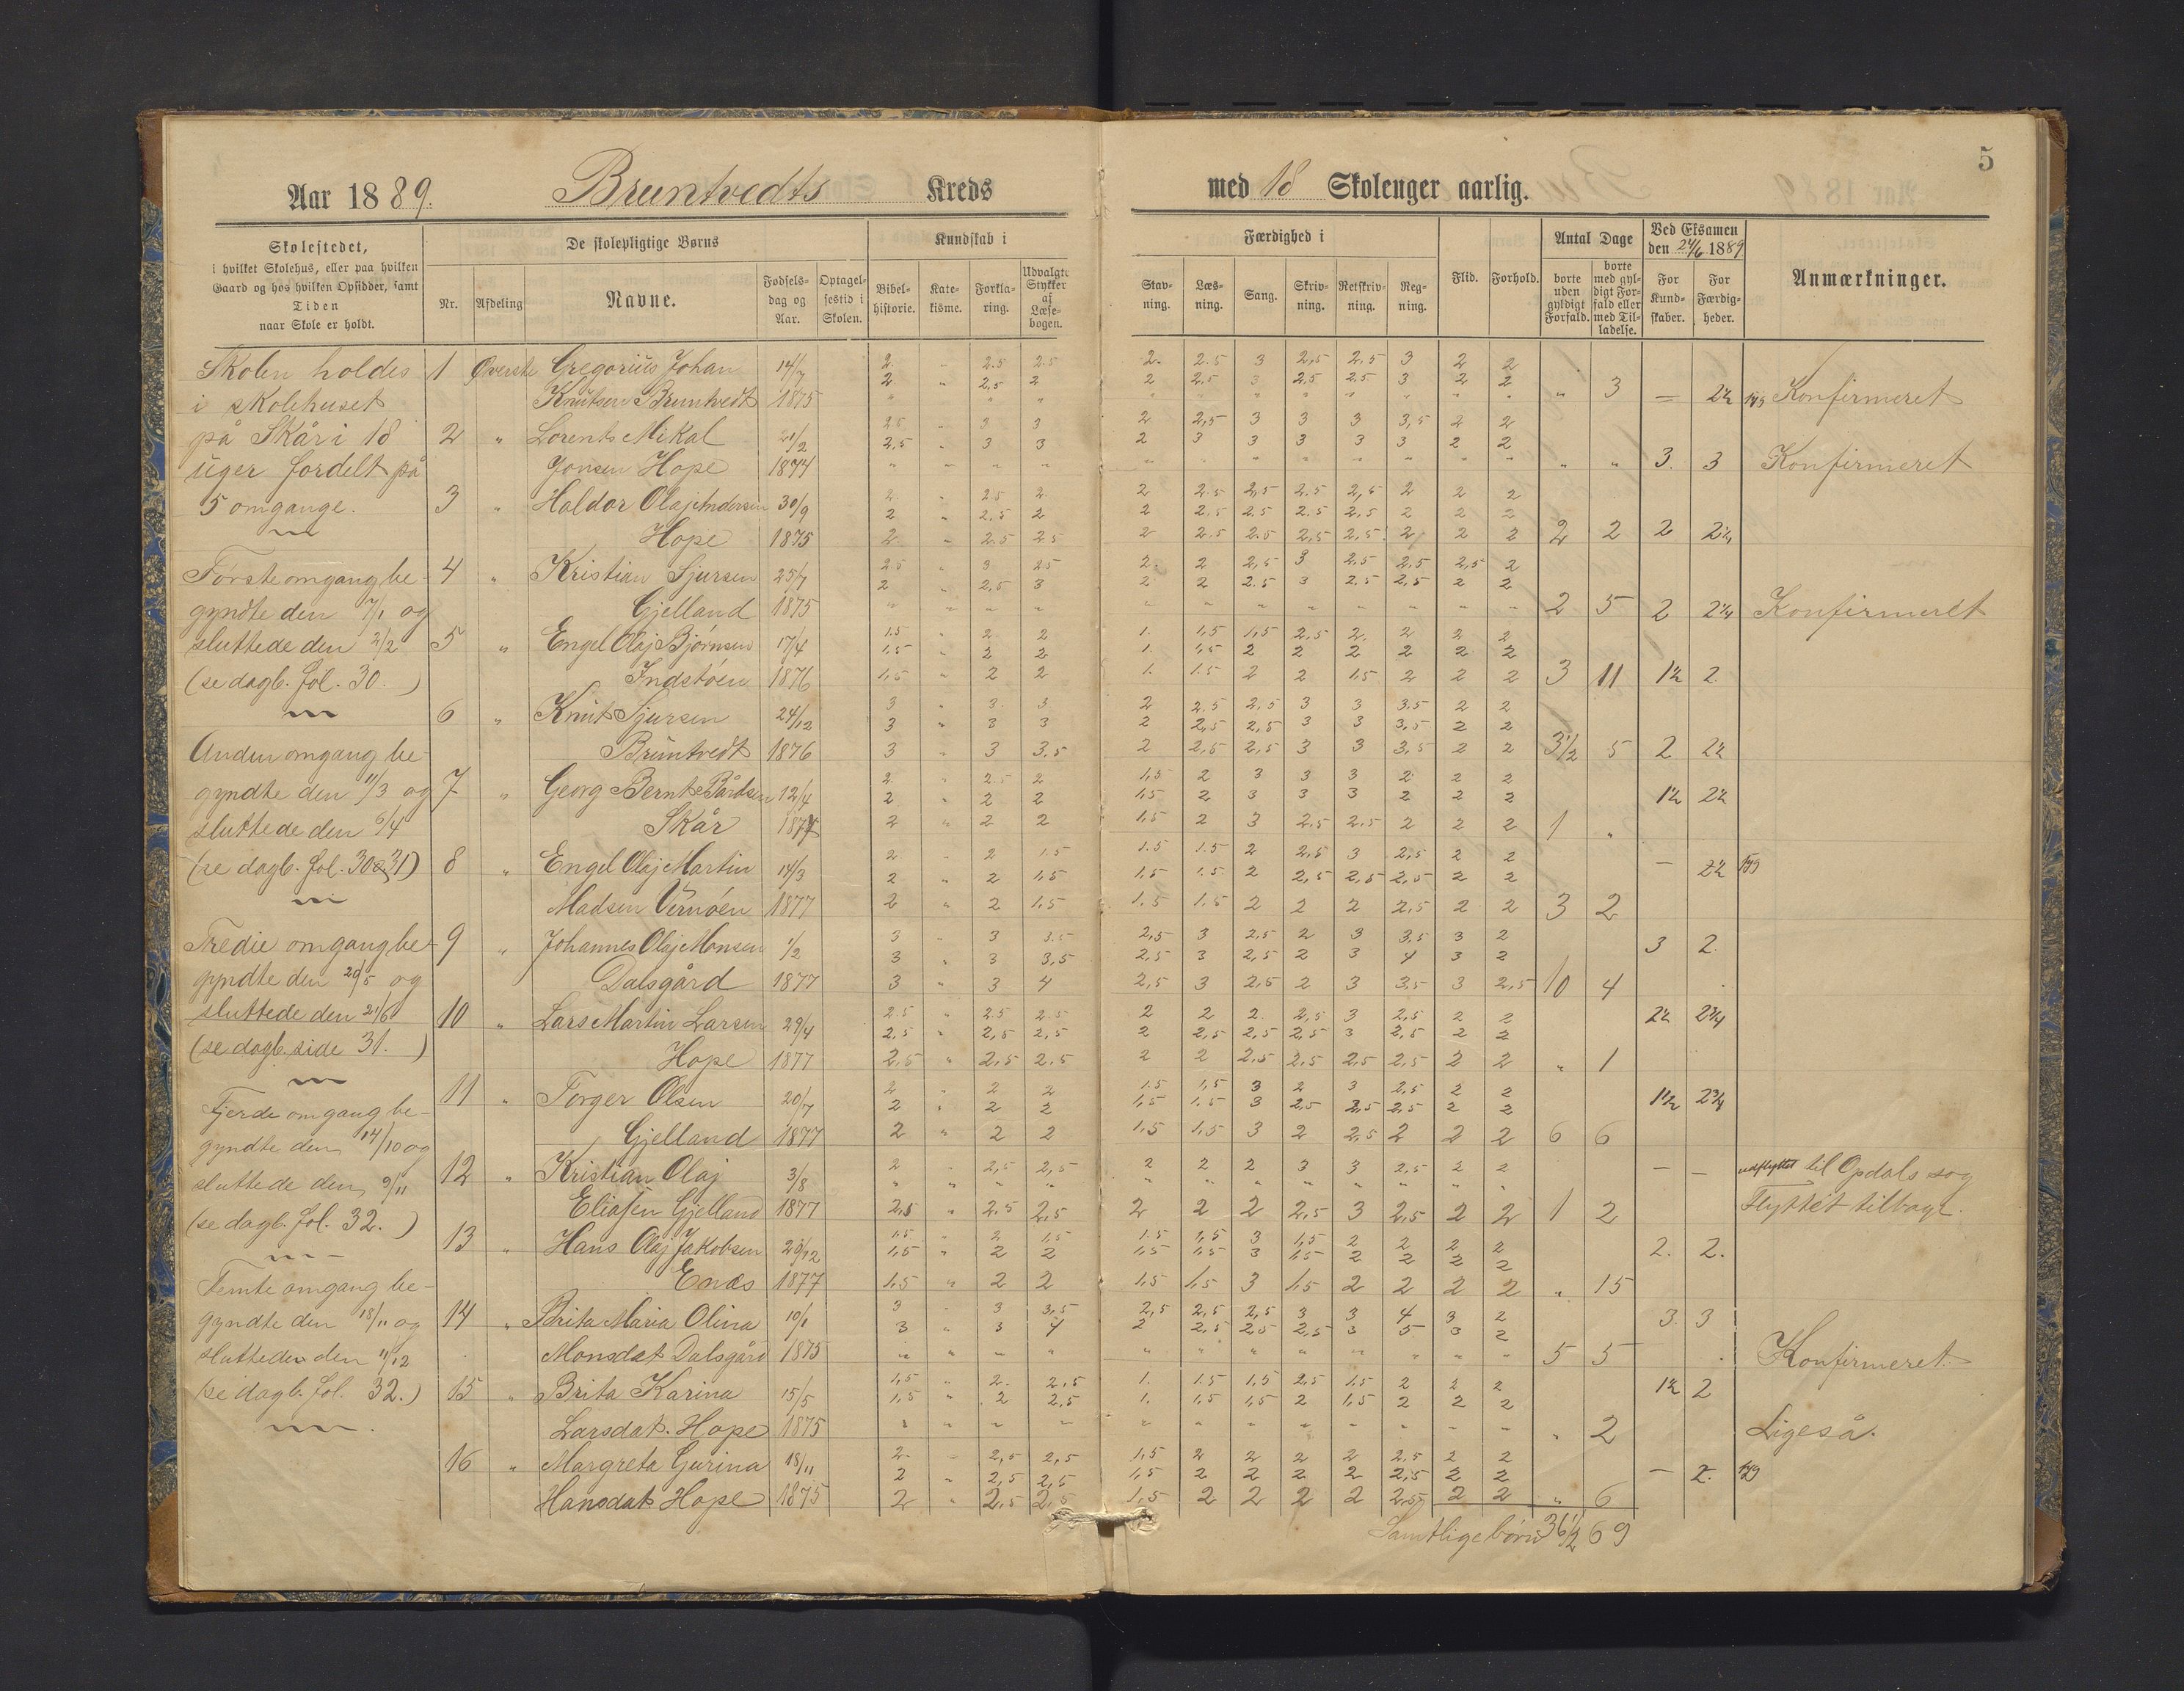 5
Aar 1889. Bruntvedts Kreds med 18 Skolenger aarlig.
Skolestedet,
i hvilket Skolehus, eller paa hvilken
Gaard og hos hvilken Opsidder, samt
Tiden
naar Skole er holdt.
De skolepligtige Børns
Nr. Afdeling Navne. Fødsels-dag og Aar. Optagel-sestid i Skolen.
Kundskab i
Bibel-historie. Kate-kisme. Forkla-ring. Udvalgte Stykker af Læse-bogen.
Færdighed i
Stav-ning. Læs-ning. Sang. Skriv-ning. Retskriv-ning. Reg-ning.
Flid. Forhold.
Antal Dage
borte uden gyldigt Forfald. borte med gyl-digt For-fald eller med Til-ladelse.
Ved Eksamen den 24/6 1889
For Kund-skaber. For Færdig-heder.
Anmærkninger.
Skolen holdes
i skolehuset
på Skår i 18
uger fordelt på
5 omgange.
Første omgang be-
gyndte den 7/1 og
sluttede den 2/2
(se dagb. fol. 30.)
Anden omgang be-
gyndte den 11/3 og
sluttede den 6/4
(se dagb. fol. 30&31)
Tredie omgang be-
gyndte den 20/5 og
sluttede den 21/6
(se dagb. side 31.)
Fjerde omgang be-
gyndte den 14/10 og
sluttede den 9/11
(se dagb. fol. 32.)
Femte omgang be-
gyndte den 18/11 og
sluttede den 11/12
(se dagb. fol. 32.)
1 Øverste Gregorius Johan 14/7 2. " 2.5 2.5 2. 2.5 3 2,5 2,5 3 2 2
2 " 2,5 2 2 2,5 3 2,5 2.5 3 2 2
Knutsen Bruntvedt 1875 " 3 — 2½ Konfirmeret
2 " Lorents Mikal 21/2 2.5 " 3 3 2 2,5 3 3 3 3,5 2 2
2,5 " 3 3 2 3 3 3 3 3 2 2
Jonsen Hope 1874 " " 3. 3 Konfirmeret
3 " Haldor Olaj Andersen 30/9 2. " 2.5 2. 2 2.5 2,5 2.5 2,5 2 2 2
2 " 2,5 2 2 2.5 2.5 2.5 2,5 2 2 2
Hope 1875 2. " 2.5 2.5 2 2.5 2.5 2,5 2,5 2 2 2 2 2 2 2¼
4 " Kristian Sjursen 25/7 2.5 " 3 2.5 2. 2 2,5 3 2.5 2.5 2,5 2
2 " 2,5 3 2 2 2.5 3 2.5 2,5 2 2
Gjelland 1875 2 5 2 2¼ Konfirmeret
5 " Engel Olaj Bjørnsen 17/4 1.5 " 2 2 1. 1,5 1,5 2,5 2. 2 2 2
1,5 " 2 2 1. 1,5 2 2 2 2 2 2
Indstøen 1876 1,5 " 2 2 1. 1.5 2 2 1.5 2 2 2 3 11 1½ 2.
6 " Knut Sjursen 24/12 3 " 3. 3 2 2.5 2.5 3 3 3.5 2 2
3 " 3 3 2 2,5 2,5 3 3 3,5 2 2
Bruntvedt 1876 3 " 3 3.5 2 2,5 2,5 3 3 3,5 2 2 3½ 5 2 2½
7 " Georg Bernt Bårdsen 12/4 2. " 2.5 2 1,5 2 3 3 3 2 2 2
2 " 2 2 1,5 2 3 3 3 2 2 2 1½ 2½
Skår 1877 2 " 2 2 1,5 2 3 2.5 2.5 2 2 2 1 "
8 " Engel Olaj Martin 14/3 2 " 2 1.5 1.5 1.5 2 2,5 3 2,5 2 2
2 " 2 1,5 1,5 1.5 2 2,5 2,5 2,5 2 2 — 2½
Madsen Vernøen 1877 2 " 2 1,5 1.5 1.5 2 2 2 2,5 2 2 3 2
9 " Johannes Olaj Monsen 1/2 3 " 3 3.5 2,5 3 2,5 2 3 3,5 3 2
3 " 3 3,5 2,5 3 2,5 2 3 4 3 2 3 2.
Dalsgård 1877 3 " 3 4 2,5 3 2,5 2 3 3,5 3 2,5 10 4
10 " Lars Martin Larsen 29/4 2.5 " 2.5 2.5 2 2 2. 2,5 3 2,5 2 2 2½ 2¾
2,5 " 2,5 2,5 2 2,5 2,5 2,5 3 2,5 2 2
Hope 1877 2.5 " 2,5 2.5 2 2 2.5 2,5 2,5 2,5 2 2 " 1
11 " Torger Olsen 20/7 2 " 2 2 1.5 1,5 3 2 3 2,5 2 2
2 " 2 2 1,5 1.5 3 2,5 2,5 2,5 2 2 1½ 2¾
Gjelland 1877 2 " 2 2 1,5 1,5 3 2 2,5 2 2 2 6 6
12 " Kristian Olaj 3/8 2 " 2,5 2,5 2 2 2 3 3 2.5 2 2 — — udflyttet til Opdals sog
Eliasen Gjelland 1877 2,5 " 2.5 2,5 2 2 2 2,5 3 2,5 2 2 1 2 Flyttet tilbage.
13 " Hans Olaj Jakobsen 28/12 1.5 " 2 1,5 1.5 1,5 3 1,5 2 2 2 2
1,5 " 2 2 1,5 1,5 3 1,5 2 2 2 2 2. 2.
Enæs 1877 1,5 " 2 2 1,5 1,5 3 1,5 2 2 2 2 " 15
14 " Brita Maria Olina 10/1 3 " 3 3,5 2,5 2,5 2,5 3 3 4 3 2 3. 3
3 " 3 4 2 2,5 2,5 2,5 3 5 3 2
Monsdat Dalsgård 1875 5 5 Konfirmeret.
15 " Brita Karina 15/5 1,5 " 2. 2,5 1. 1.5 1,5 2,5 1.5 2 2 2
1,5 " 2 2,5 1. 1,5 1,5 2 1,5 2 2 2 1½ 2
Larsdat. Hope 1875 " 2 Ligeså.
16 " Margreta Gurina 18/11 2. " 2,5 2,5 1,5 2 2 2 2 2.5 2 2
2 " 2,5 2,5 1,5 2 2 2 2 2,5 2 2 — 2.
Hansdat Hope 1875 2 " 2,5 2,5 1,5 2 2 2 2 2,5 2 2 " 6
Samtlige børn 36½ 69